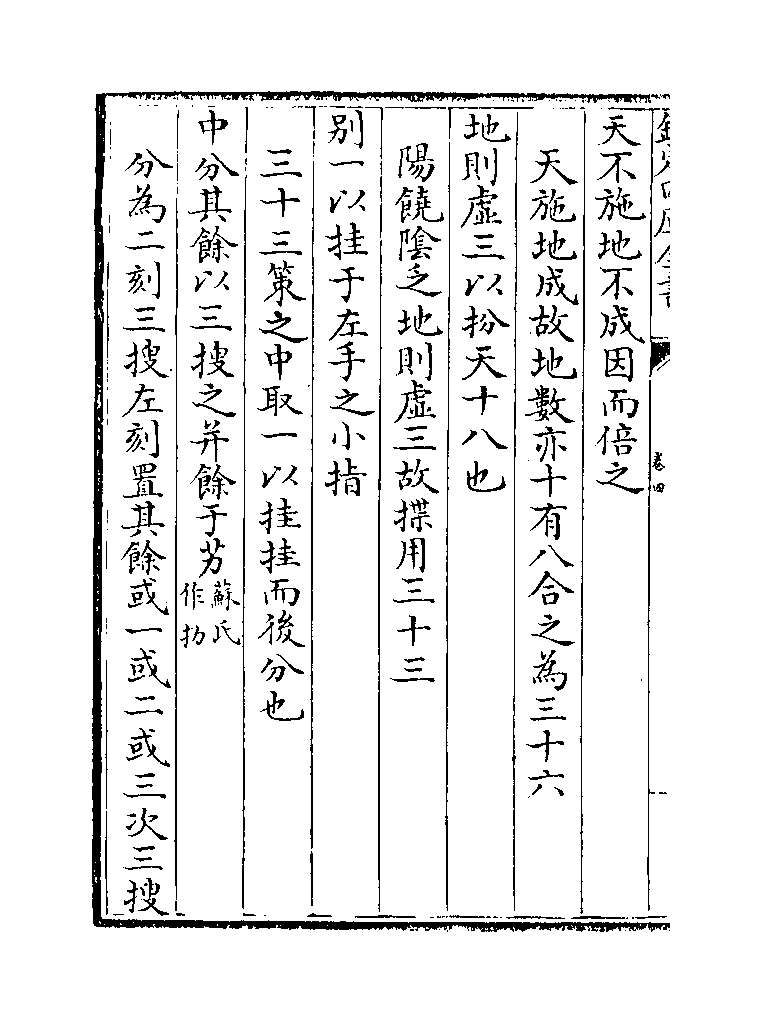 欽定四庫全書
卷四
天不施地不成因而倍之
天施地成故地數亦十有八合之為三十六
地則虛三以扮天十八也
陽饒隂乏地則虛三故揲用三十三
别一以挂于左手之小指
三十三策之中取一以挂挂而後分也
中分其餘以三搜之并餘于艻蘇氏作扐
分為二刻三搜左刻置其餘或一或二或三次三搜